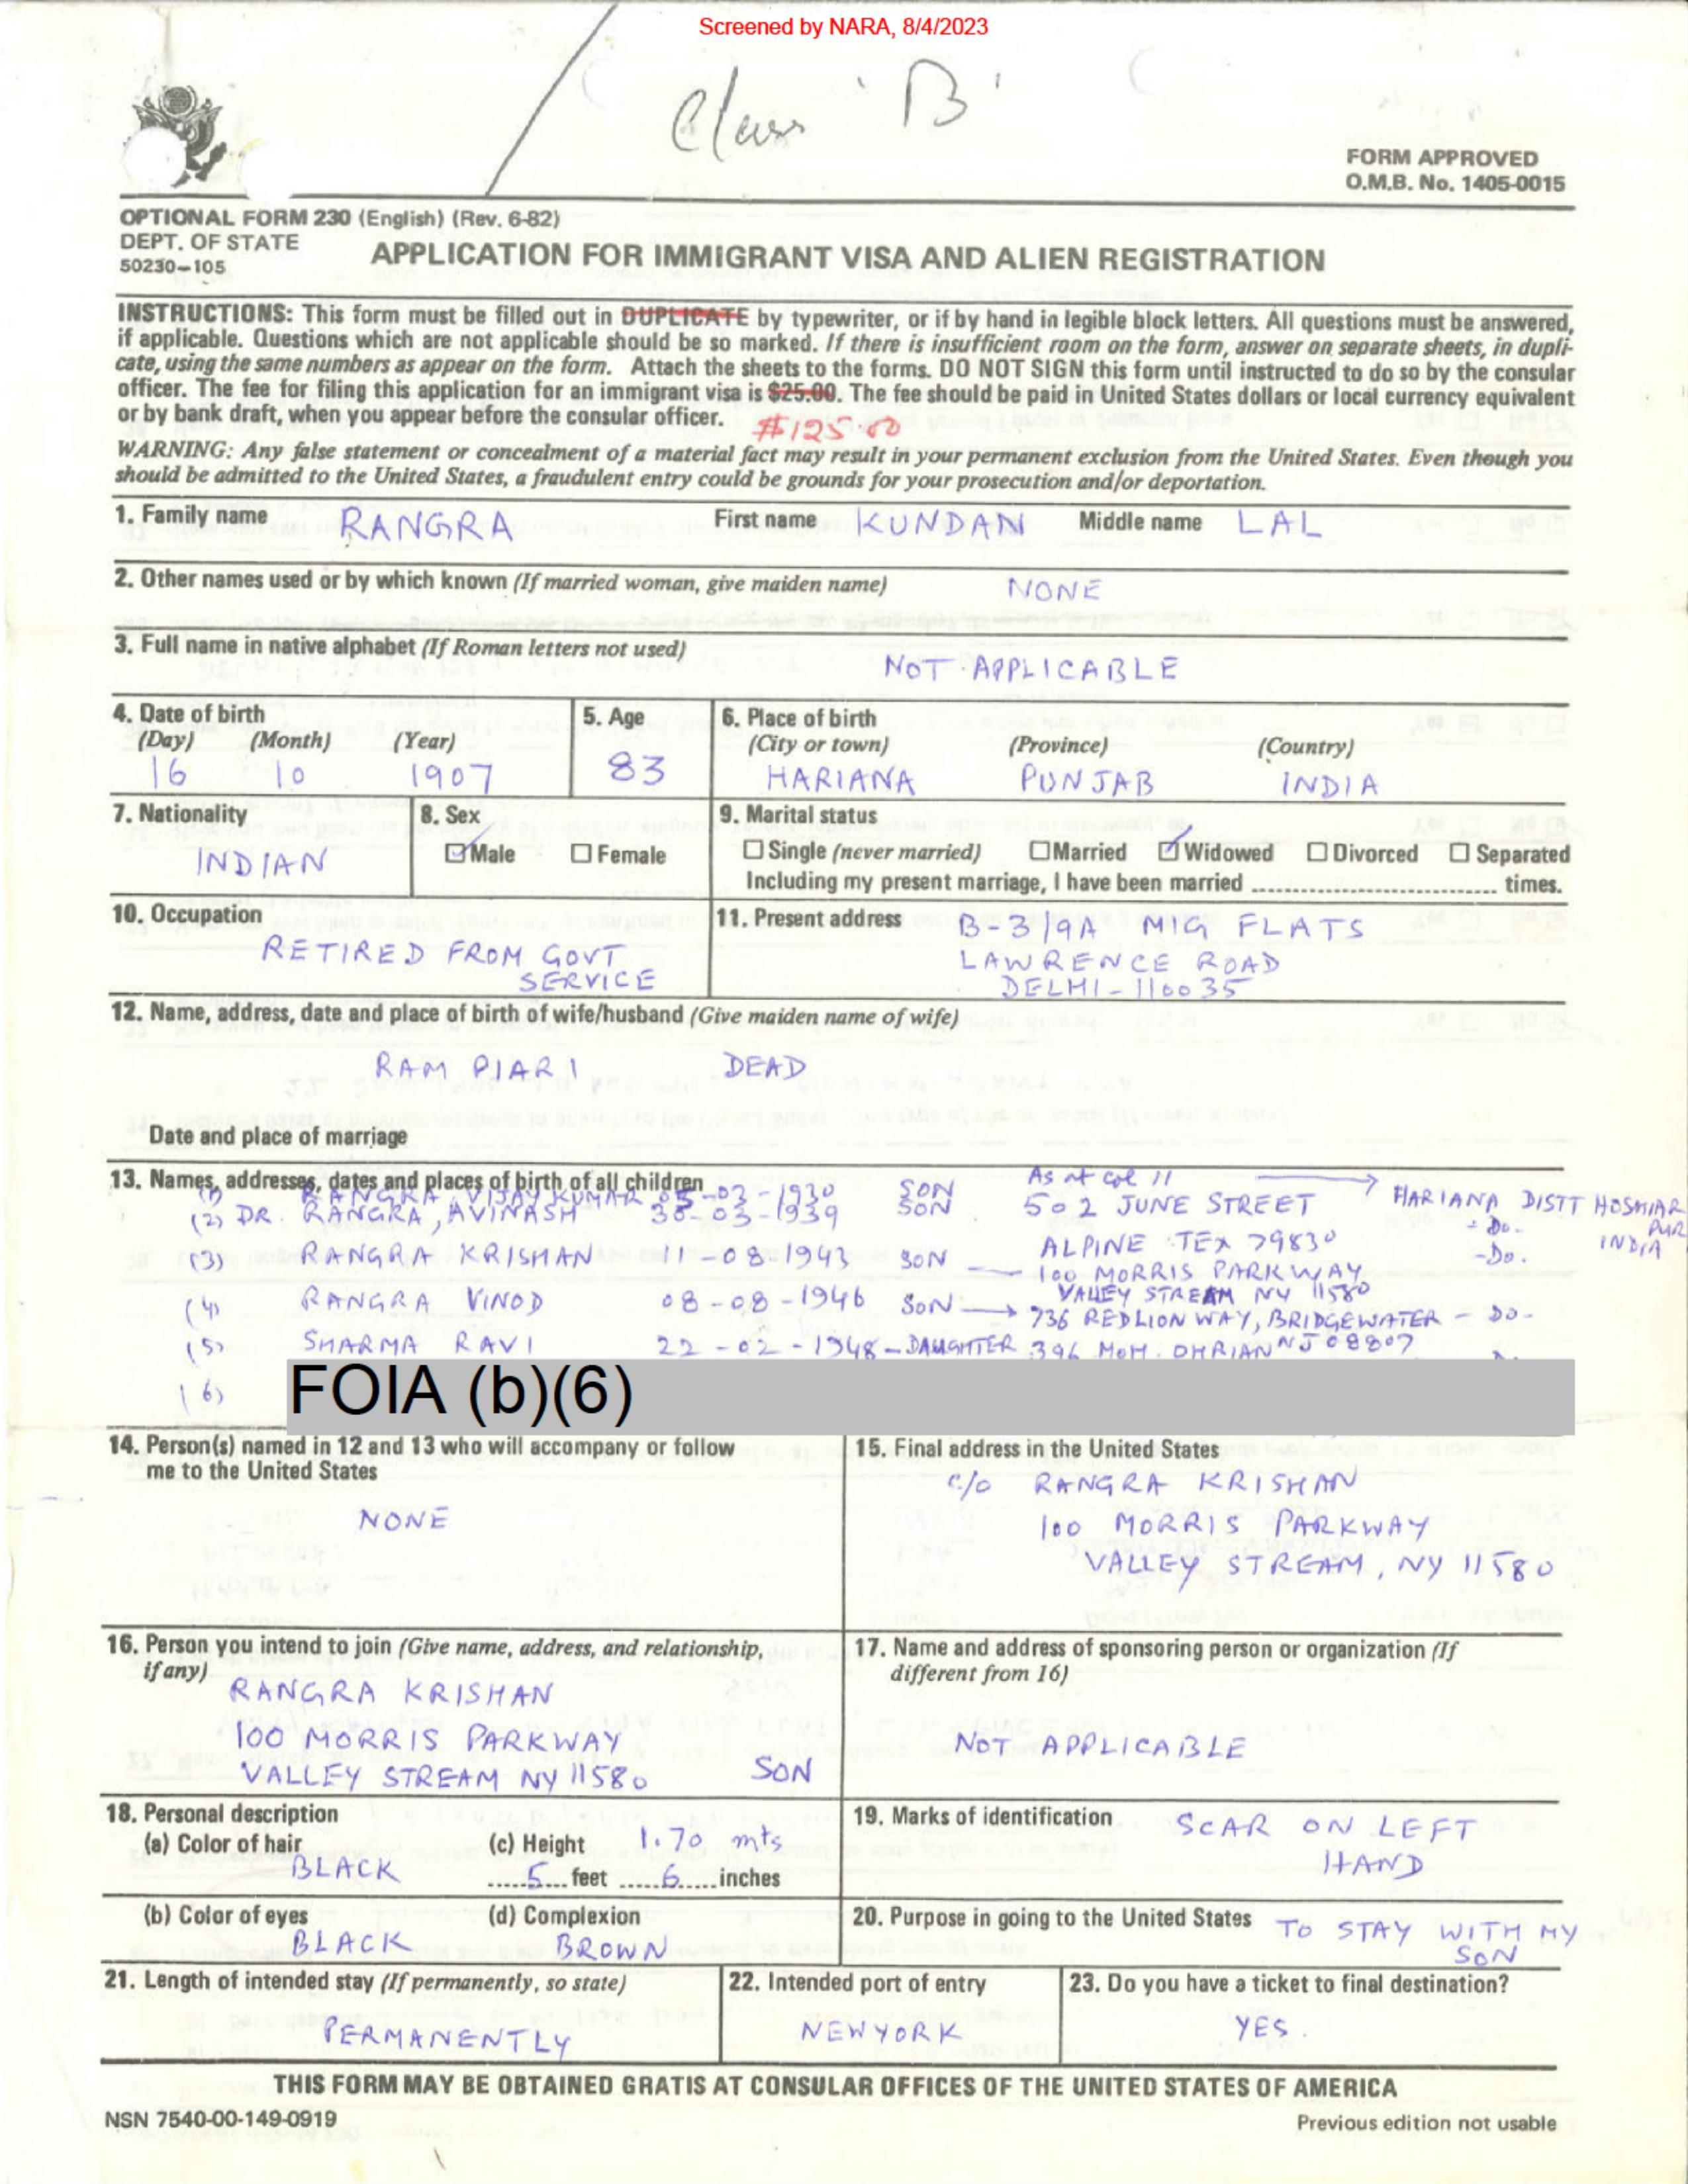 Screened by NARA, 8/4/2023
Class 'B'
FORM APPROVED
O.M.B. No. 1405-0015
OPTIONAL FORM 230 (English) (Rev. 6-82)
DEPT. OF STATE
50230-105
APPLICATION FOR IMMIGRANT VISA AND ALIEN REGISTRATION
INSTRUCTIONS: This form must be filled out in DUPLICATE by typewriter, or if by hand in legible block letters. All questions must be answered,
if applicable. Questions which are not applicable should be so marked. If there is insufficient room on the form, answer on separate sheets, in dupli-
cate, using the same numbers as appear on the form. Attach the sheets to the forms. DO NOT SIGN this form until instructed to do so by the consular
officer. The fee for filing this application for an immigrant visa is $25.00. The fee should be paid in United States dollars or local currency equivalent
or by bank draft, when you appear before the consular officer. $125.00
WARNING: Any false statement or concealment of a material fact may result in your permanent exclusion from the United States. Even though you
should be admitted to the United States, a fraudulent entry could be grounds for your prosecution and/or deportation.
1. Family name RANGRA First name KUNDAN Middle name LAL
2. Other names used or by which known (If married woman, give maiden name) NONE
3. Full name in native alphabet (If Roman letters not used) NOT APPLICABLE
4. Date of birth
(Day) (Month) (Year)
16 10 1907
5. Age
83
6. Place of birth
(City or town) (Province) (Country)
HARIANA PUNJAB INDIA
7. Nationality
INDIAN
8. Sex
Male Female
9. Marital status
Single (never married) Married Widowed Divorced Separated
Including my present marriage, I have been married ........ times.
10. Occupation
RETIRED FROM GOVT
SERVICE
11. Present address B-3/9A MIG FLATS
LAWRENCE ROAD
DELHI-110035
12. Name, address, date and place of birth of wife/husband (Give maiden name of wife)
RAM PIARI DEAD
Date and place of marriage
13. Names, addresses, dates and places of birth of all children
(1) RANGRA, VIJAY KUMAR 05-03-1930 SON As at col 11 HARIANA DISTT HOSHIAR
PUR
INDIA
(2) DR. RANGRA, AVINASH 30-03-1939 SON 502 JUNE STREET - Do.
ALPINE TEX 79830
(3) RANGRA KRISHAN 11-08-1943 SON 100 MORRIS PARKWAY -Do.
VALLEY STREAM NY 11580
(4) RANGRA VINOD 08-08-1946 SON 736 REDLION WAY, BRIDGEWATER - DO-
NJ 08807
(5) SHARMA RAVI 22-02-1948-DAUGHTER 396
(6) FOIA (b)(6)
14. Person(s) named in 12 and 13 who will accompany or follow
me to the United States
NONE
15. Final address in the United States
c/o RANGRA KRISHAN
100 MORRIS PARKWAY
VALLEY STREAM, NY 11580
16. Person you intend to join (Give name, address, and relationship,
if any)
RANGRA KRISHAN
100 MORRIS PARKWAY
VALLEY STREAM NY 11580 SON
17. Name and address of sponsoring person or organization (If
different from 16)
NOT APPLICABLE
18. Personal description
(a) Color of hair
BLACK
(c) Height 1.70 mts
5 feet 6 inches
19. Marks of identification SCAR ON LEFT
HAND
(b) Color of eyes
BLACK
(d) Complexion
BROWN
20. Purpose in going to the United States TO STAY WITH MY
SON
21. Length of intended stay (If permanently, so state)
PERMANENTLY
22. Intended port of entry
NEWYORK
23. Do you have a ticket to final destination?
YES.
THIS FORM MAY BE OBTAINED GRATIS AT CONSULAR OFFICES OF THE UNITED STATES OF AMERICA
NSN 7540-00-149-0919
Previous edition not usable